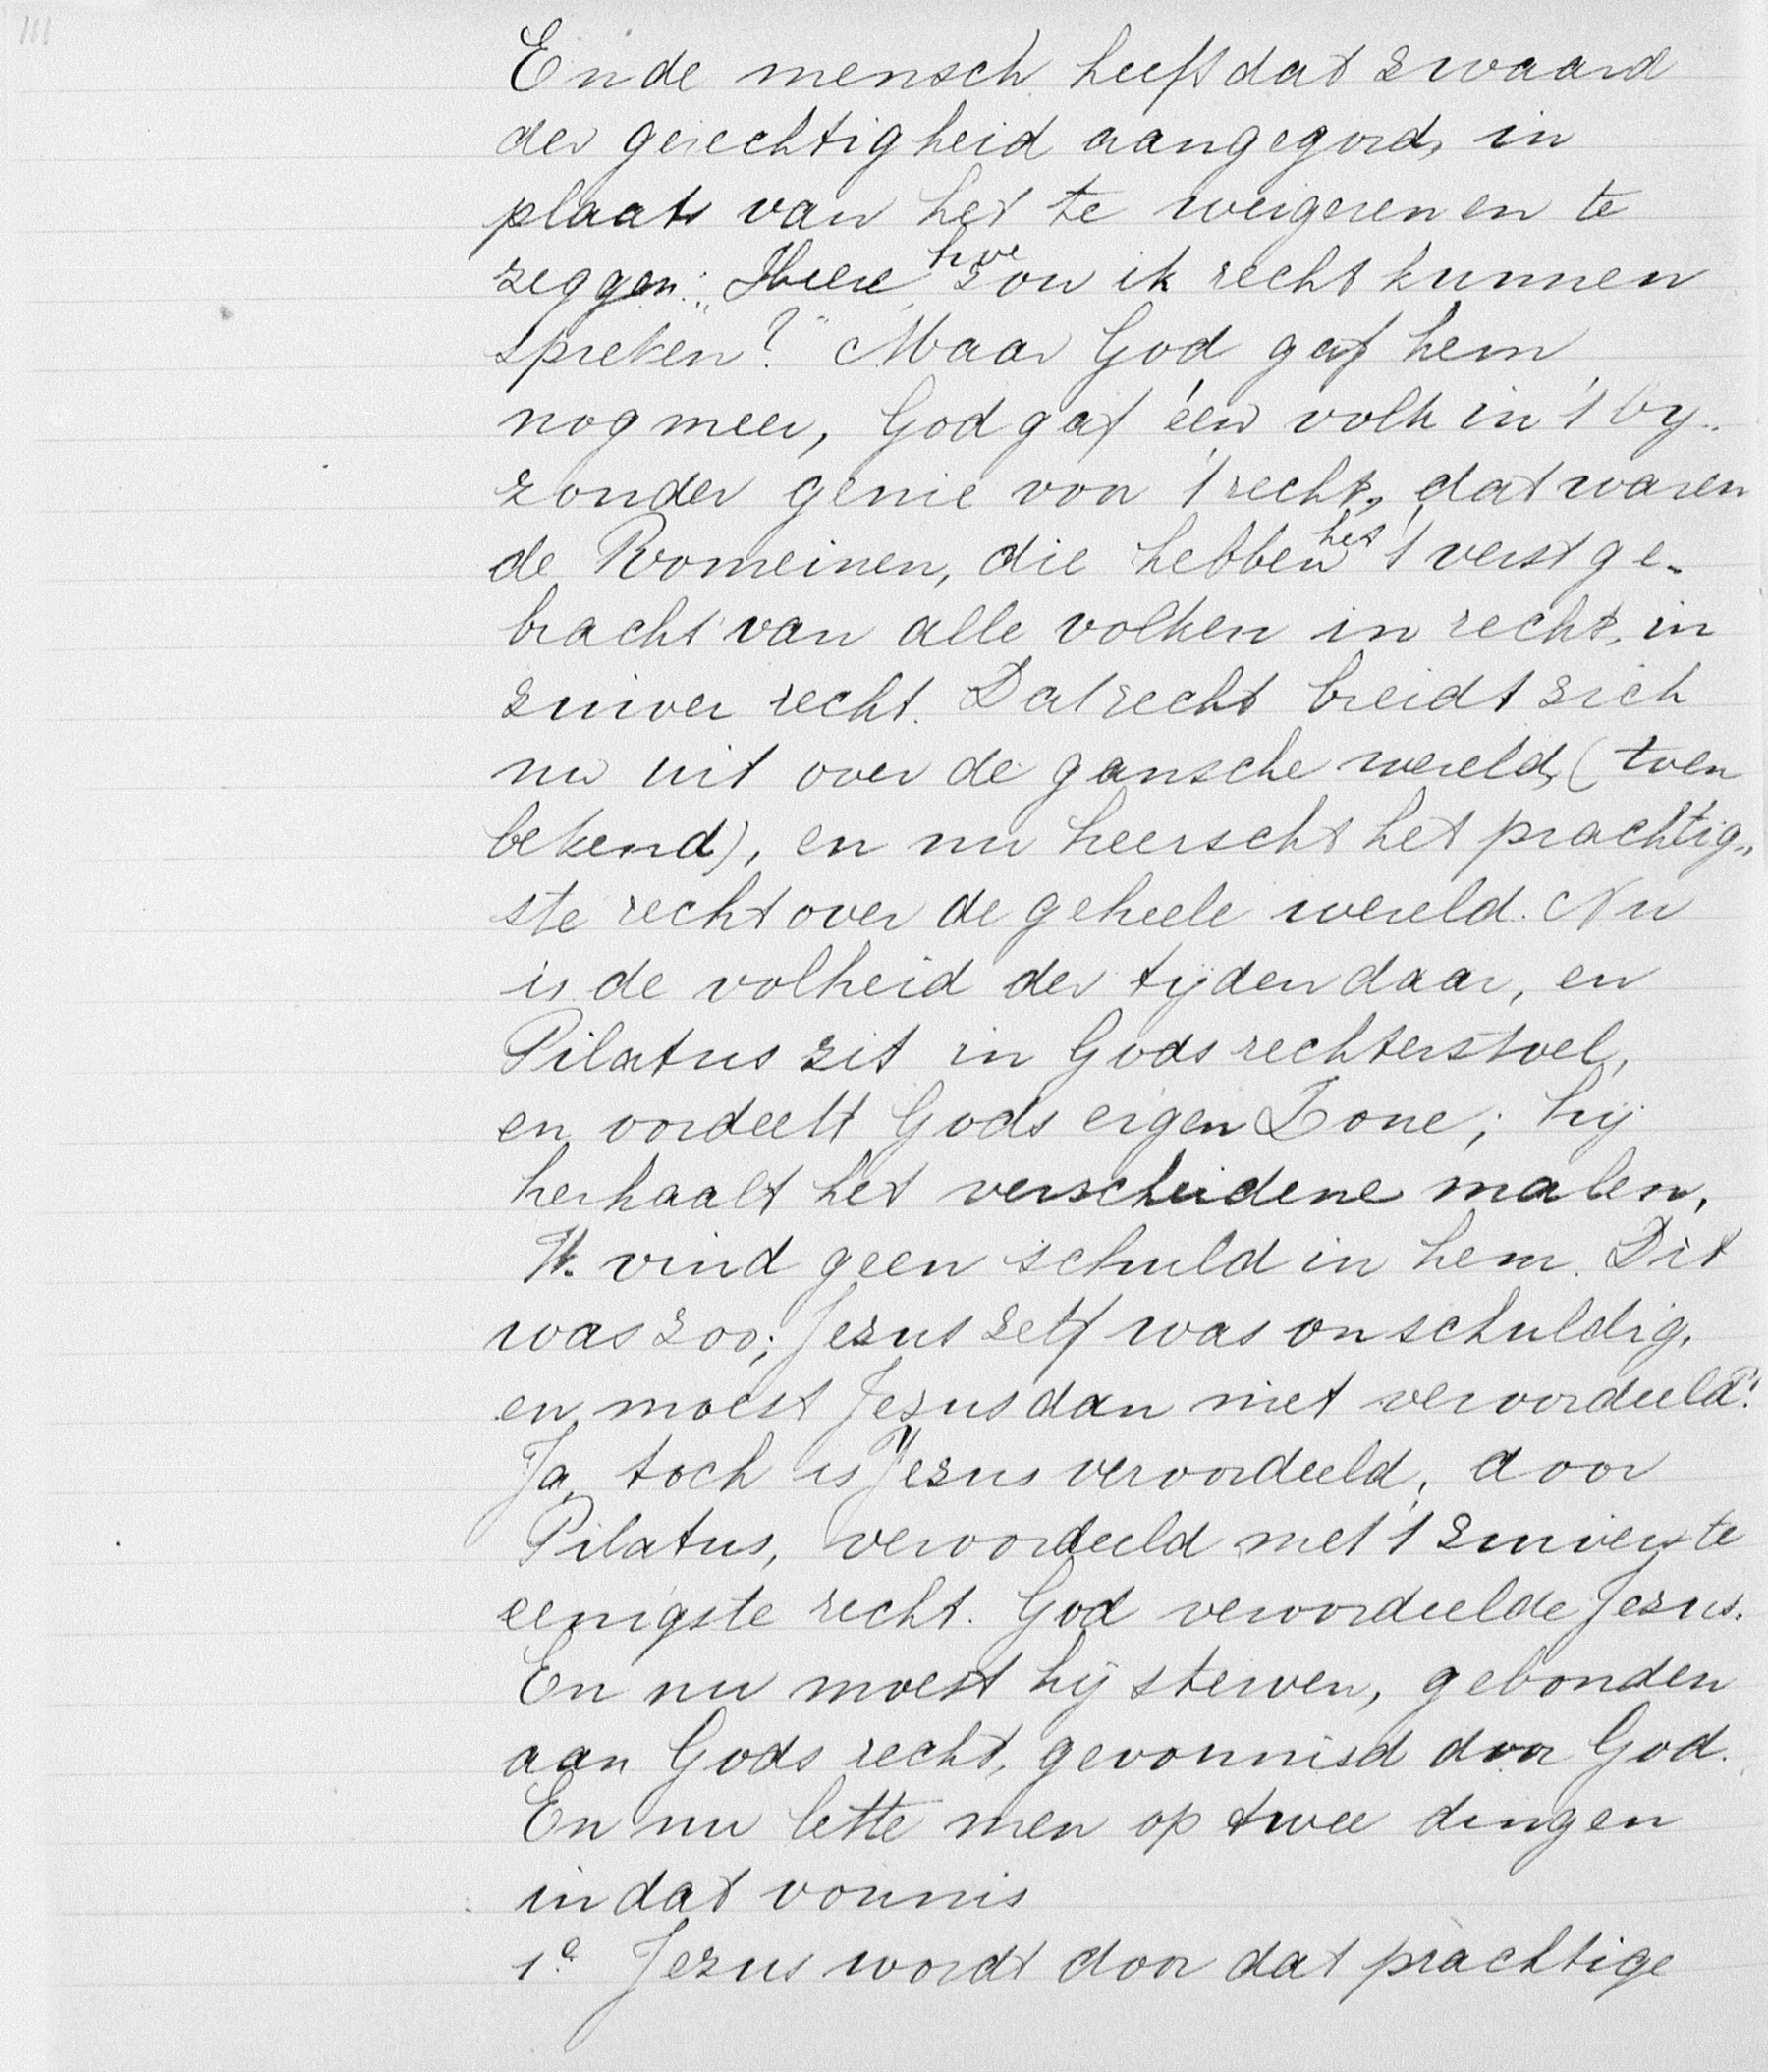 111
En de mensch heeft dat zwaard
der gerechtigheid aangegord, in
plaats van het te weigeren en te
zeggen: „Heere hoe zou ik recht kunnen
spreken?" Maar God gaf hem
nog meer, God gaf één volk in 't by-
zonder genie voor 't recht, dat waren
de Romeinen, die hebben het 't verst ge-
bracht van alle volken in recht, in
zuiver recht. Dat recht breidt zich
nu uit over de gansche wereld, (toen
bekend), en nu heerscht het prachtig-
ste recht over de geheele wereld. Nu
is de volheid der tijden daar, en
Pilatus zit in Gods rechterstoel,
en oordeelt Gods eigen Zone; hij
herhaalt het verscheidene malen,
Ik vind geen schuld in hem. Dit
was zoo; Jezus zelf was onschuldig,
en moest Jezus dan niet veroordeeld?
Ja, toch is Jezus veroordeeld, door
Pilatus, veroordeeld met 't zuiverste
eenigste recht. God veroordeelde Jezus.
En nu moest hij sterven, gebonden
aan Gods recht, gevonnisd door God.
En nu lette men op twee dingen
in dat vonnis
1e Jezus wordt door dat prachtige